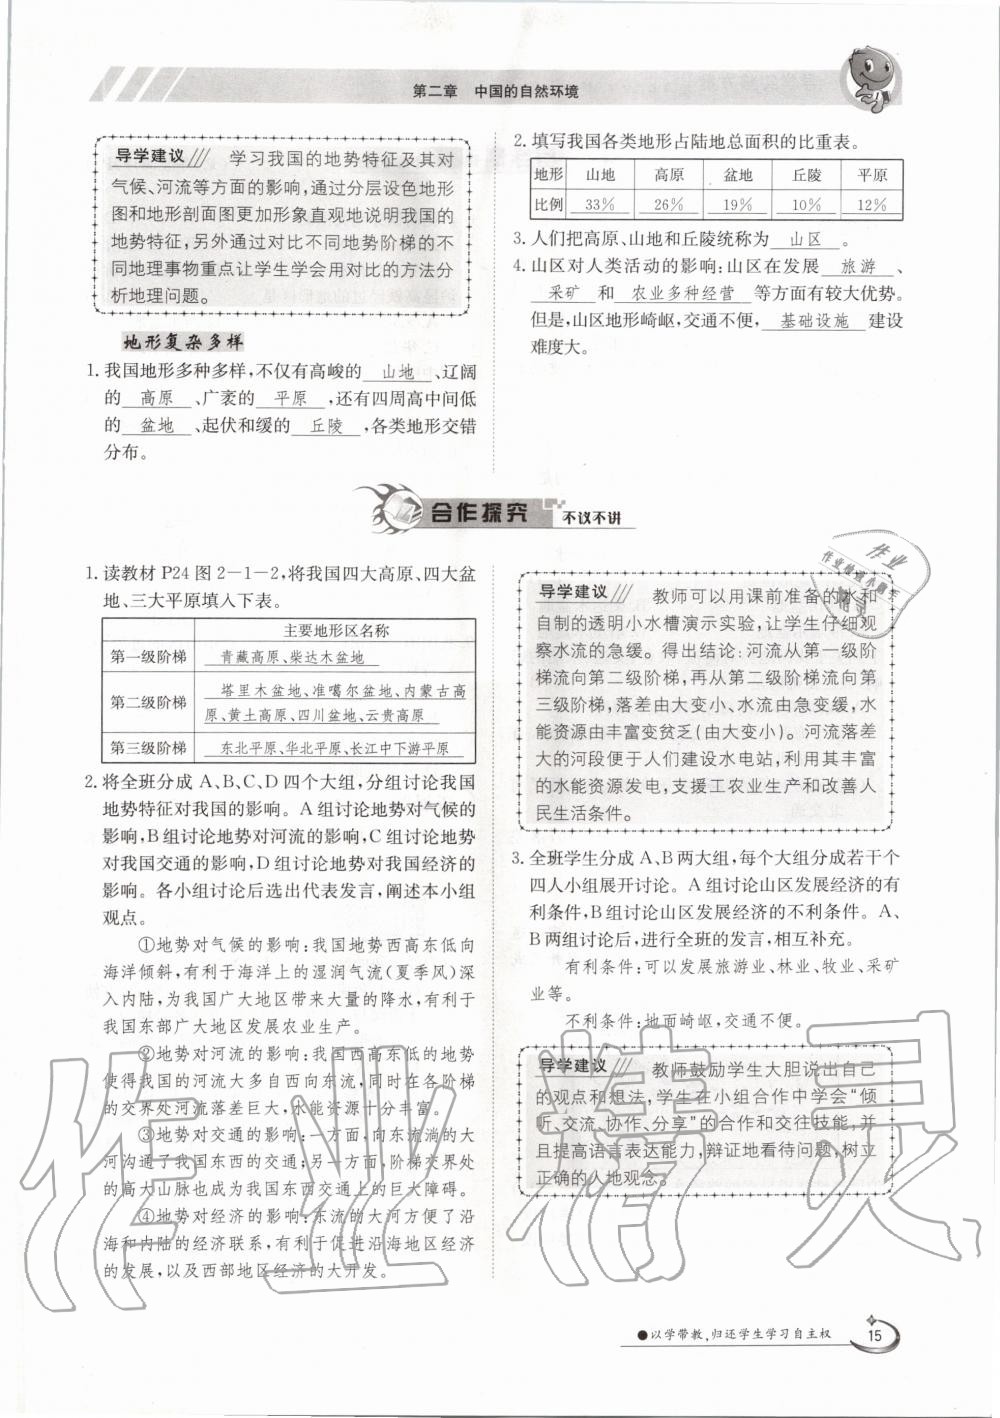 第二章 中国的自然环境
导学建议 学习我国的地势特征及其对
气候、河流等方面的影响,通过分层设色地形
图和地形剖面图更加形象直观地说明我国的
地势特征,另外通过对比不同地势阶梯的不
同地理事物重点让学生学会用对比的方法分
析地理问题。
地形复杂多样
1. 我国地形多种多样,不仅有高峻的 山地 、辽阔
的 高原 、广袤的 平原 ,还有四周高中间低
的 盆地 、起伏和缓的 丘陵 ,各类地形交错
分布。
2. 填写我国各类地形占陆地总面积的比重表。
地形 山地 高原 盆地 丘陵 平原
比例 33% 26% 19% 10% 12%
3. 人们把高原、山地和丘陵统称为 山区 。
4. 山区对人类活动的影响:山区在发展 旅游 、
采矿 和 农业多种经营 等方面有较大优势。
但是,山区地形崎岖,交通不便, 基础设施 建设
难度大。
合作探究 不议不讲
1. 读教材 P24 图 2-1-2,将我国四大高原、四大盆
地、三大平原填入下表。
主要地形区名称
第一级阶梯 青藏高原、柴达木盆地
第二级阶梯 塔里木盆地、准噶尔盆地、内蒙古高
原、黄土高原、四川盆地、云贵高原
第三级阶梯 东北平原、华北平原、长江中下游平原
2. 将全班分成 A、B、C、D 四个大组,分组讨论我国
地势特征对我国的影响。A 组讨论地势对气候的
影响,B 组讨论地势对河流的影响,C 组讨论地势
对我国交通的影响,D 组讨论地势对我国经济的
影响。各小组讨论后选出代表发言,阐述本小组
观点。
①地势对气候的影响:我国地势西高东低向
海洋倾斜,有利于海洋上的湿润气流(夏季风)深
入内陆,为我国广大地区带来大量的降水,有利于
我国东部广大地区发展农业生产。
②地势对河流的影响:我国西高东低的地势
使得我国的河流大多自西向东流,同时在各阶梯
的交界处河流落差巨大,水能资源十分丰富。
③地势对交通的影响:一方面,向东流淌的大
河沟通了我国东西的交通;另一方面,阶梯交界处
的高大山脉也成为我国东西交通上的巨大障碍。
④地势对经济的影响:东流的大河方便了沿
海和内陆的经济联系,有利于促进沿海地区经济
的发展,以及西部地区经济的大开发。
导学建议 教师可以用课前准备的水和
自制的透明小水槽演示实验,让学生仔细观
察水流的急缓。得出结论:河流从第一级阶
梯流向第二级阶梯,再从第二级阶梯流向第
三级阶梯,落差由大变小、水流由急变缓,水
能资源由丰富变贫乏(由大变小)。河流落差
大的河段便于人们建设水电站,利用其丰富
的水能资源发电,支援工农业生产和改善人
民生活条件。
3. 全班学生分成 A、B 两大组,每个大组分成若干个
四人小组展开讨论。A 组讨论山区发展经济的有
利条件,B 组讨论山区发展经济的不利条件。A、
B 两组讨论后,进行全班的发言,相互补充。
有利条件:可以发展旅游业、林业、牧业、采矿
业等。
不利条件:地面崎岖,交通不便。
导学建议 教师鼓励学生大胆说出自己
的观点和想法,学生在小组合作中学会“倾
听、交流、协作、分享”的合作和交往技能,并
且提高语言表达能力,辩证地看待问题,树立
正确的人地观念。
作业精灵
●以学带教,归还学生学习自主权 15